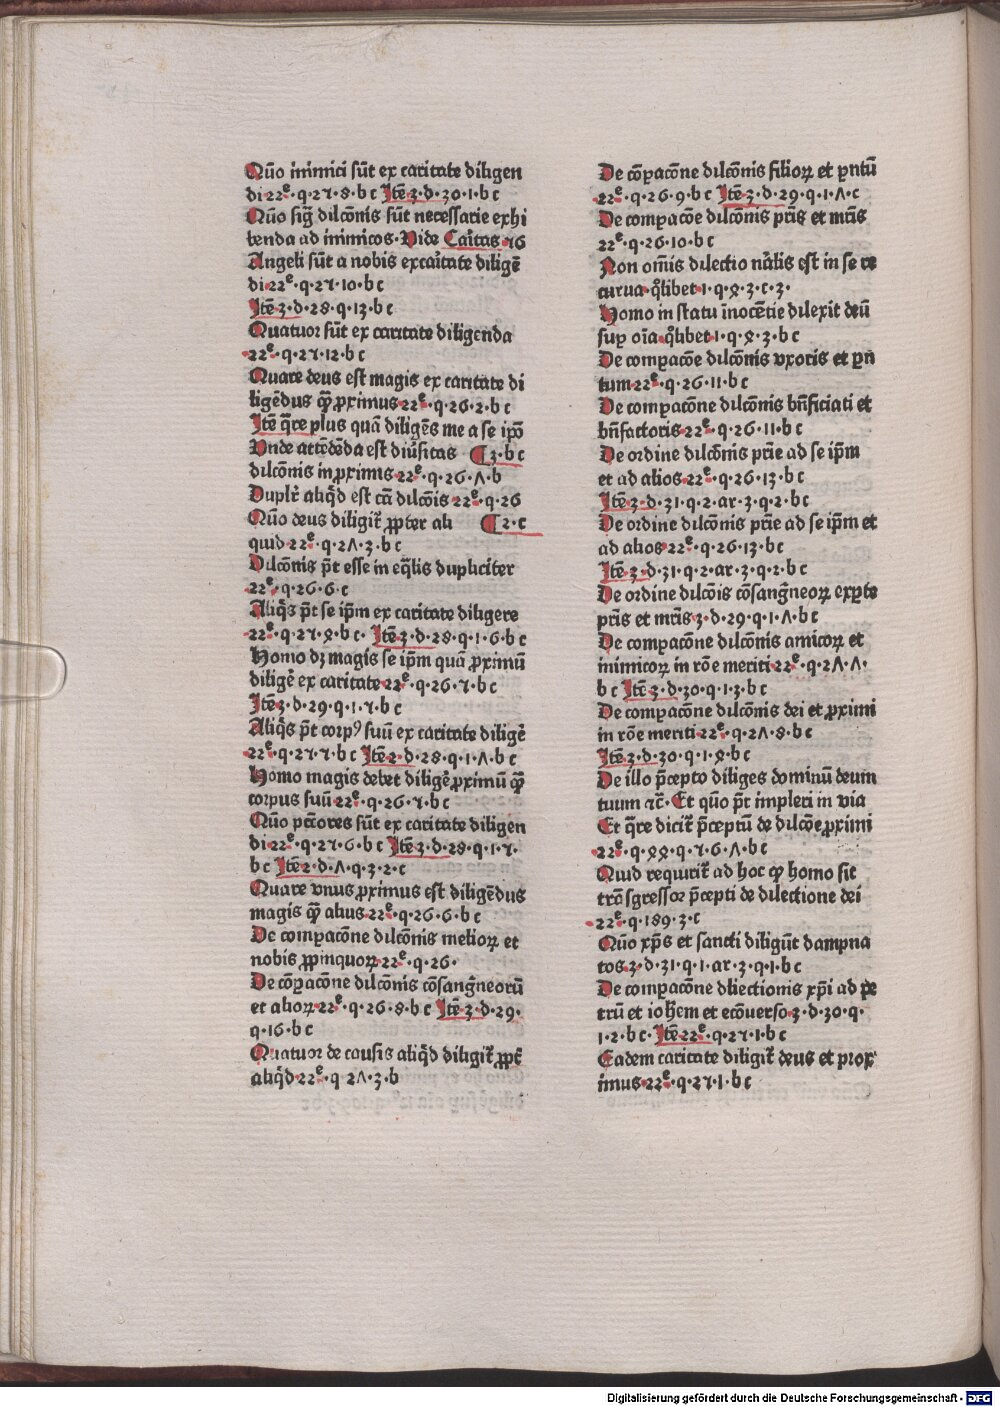 Quō inimici sūt ex caritate diligen
di 22ͤ·q·27·8·b c Itē 3·d·30·1·b c
Quō sig̃ dilcōnis sūt necessarie exhi
benda ad inimicos·Vide Caritas 76
Angeli sūt a nobis excaritate diligē
di 22ͤ·q·27·10·b c
Itē 3·d·28·q·13·b c
Quatuor sūt ex caritate diligenda
22ͤ·q·27·12·b c
Quare deus est magis ex caritate di
ligēdus q̃ꝫ ꝓximus 22ͤ·q·26·2·b c
Itē q̃re plus quā diligēs me a se ipō
Vnde attēdēda est diūsitas ⸿ 3·b c
dilcōnis in ꝓximis 22ͤ·q·26·ʌ·b
Duplr̄ aliq̄d est cā dilcōis 22ͤ·q·26
Quō deus diligit̄ ꝓpter ali ⸿ 2·c
quid 22ͤ·q·2ʌ·3·b c
Dilcōnis p̄t esse in eq̄lis dupliciter
22ͤ·q·26·6·c
Aliq̄s p̄t se ip̄m ex caritate diligere
22ͤ·q·27·9·b c· Itē 3·d·28·q·1·6·b c
Homo dꝫ magis se ip̄m quā ꝓximū
diligē ex caritate 22ͤ·q·26·7·b c
Itē 3·d·29·q·1·7·b c
Aliq̄s p̄t corpꝰ suū ex caritate diligē
22ͤ·q·27·7·b c Itē 2·d·28·q·1·ʌ·b c
Homo magis debet diligē ꝓximū q̃ꝫ
corpus suū 22ͤ·q·26·7·b c
Quō pctōres sūt ex caritate diligen
di 22ͤ·q·27·6·b c Itē 3·d·28·q·1·7·
b c Itē 2·d·ʌ·q·3·2·c
Quare vnus ꝓximus est diligēdus
magis q̃ꝫ alius 22ͤ·q·26·6·b c
De compacōne dilcōnis melioꝝ et
nobis ꝓpinquoꝝ 22ͤ·q·26·
De cōpacōne dilcōnis cōsang̃neorū
et alioꝝ 22ͤ·q·26·8·b c Itē 3·d·29·
q·16·b c
Quatuor de causis aliq̄d diligit̄ ꝓpt̄
aliq̄d 22ͤ·q 2ʌ·3·b
De cōpacōne dilcōnis filioꝝ et pn̄tū
22ͤ·q·26·9·b c Itē 3·d·29·q·1·ʌ·c
De compacōe dilcōnis pr̄is et mr̄is
22ͤ·q·26·10·b c
Non om̄is dilectio nālis est in se re
curua q̄libet 1·q·9·3·c·3·
Homo in statu īnocētie dilexit deū
sup oīa q̄libet 1·q·9·3·b c
De compacōe dilcōnis vxoris et pn̄
tum 22ͤ·q·26·11·b c
De compacōne dilcōnis bn̄ficiati et
bn̄factoris 22ͤ·q·26·11·b c
De ordine dilcōnis pr̄ie ad se ip̄m
et ad alios 22ͤ·q·26·13·b c
Itē 3·d·31·q·2·ar·3·q·2·b c
De ordine dilcōnis pr̄ie ad se ip̄m et
ad alios 22ͤ·q·26·13·b c
Itē 3·d·31·q·2·ar·3·q·2·b c
De ordine dilcōis cōsang̃neoꝝ exꝑte
pr̄is et mr̄is 3·d·29·q·1·ʌ·b c
De compacōne dilcōnis amicoꝝ et
inimicoꝝ in rōe meriti 22ͤ·q·2ʌ·ʌ·
b c Itē 3·d·30·q·1·3·b c
De compacōne dilcōnis dei et ꝓximi
in rōe meriti 22ͤ·q·2ʌ·8·b c
Itē 3·d·30·q·1·9·b c
De illo p̄cepto diliges dominū deum
tuum ⁊c̄·Et quō p̄t impleri in via
Et q̃re dicit̄ p̄ceptū de dilcōe ꝓximi
22ͤ·q·99·q·7·6·ʌ·b c
Quid requirit̄ ad hoc ꝙ homo sit
trāsgressor p̄cepti de dilectione dei
22ͤ·q·189·3·c
Quō xp̄s et sancti diligūt dampna
tos 3·d·31·q·1·ar·3·q·1·b c
De compacōne dliectionis xp̄i ad pe
trū et ioh̄em et ecōuerso 3·d·30·q·
1·2·b c·Itē 22ͤ·q·27·1·b c
Eadem caritate diligit̄ deus et prox
imus 22ͤ·q·27·1·b c
Digitalisierung gefördert durch die Deutsche Forschungsgemeinschaft - DFG